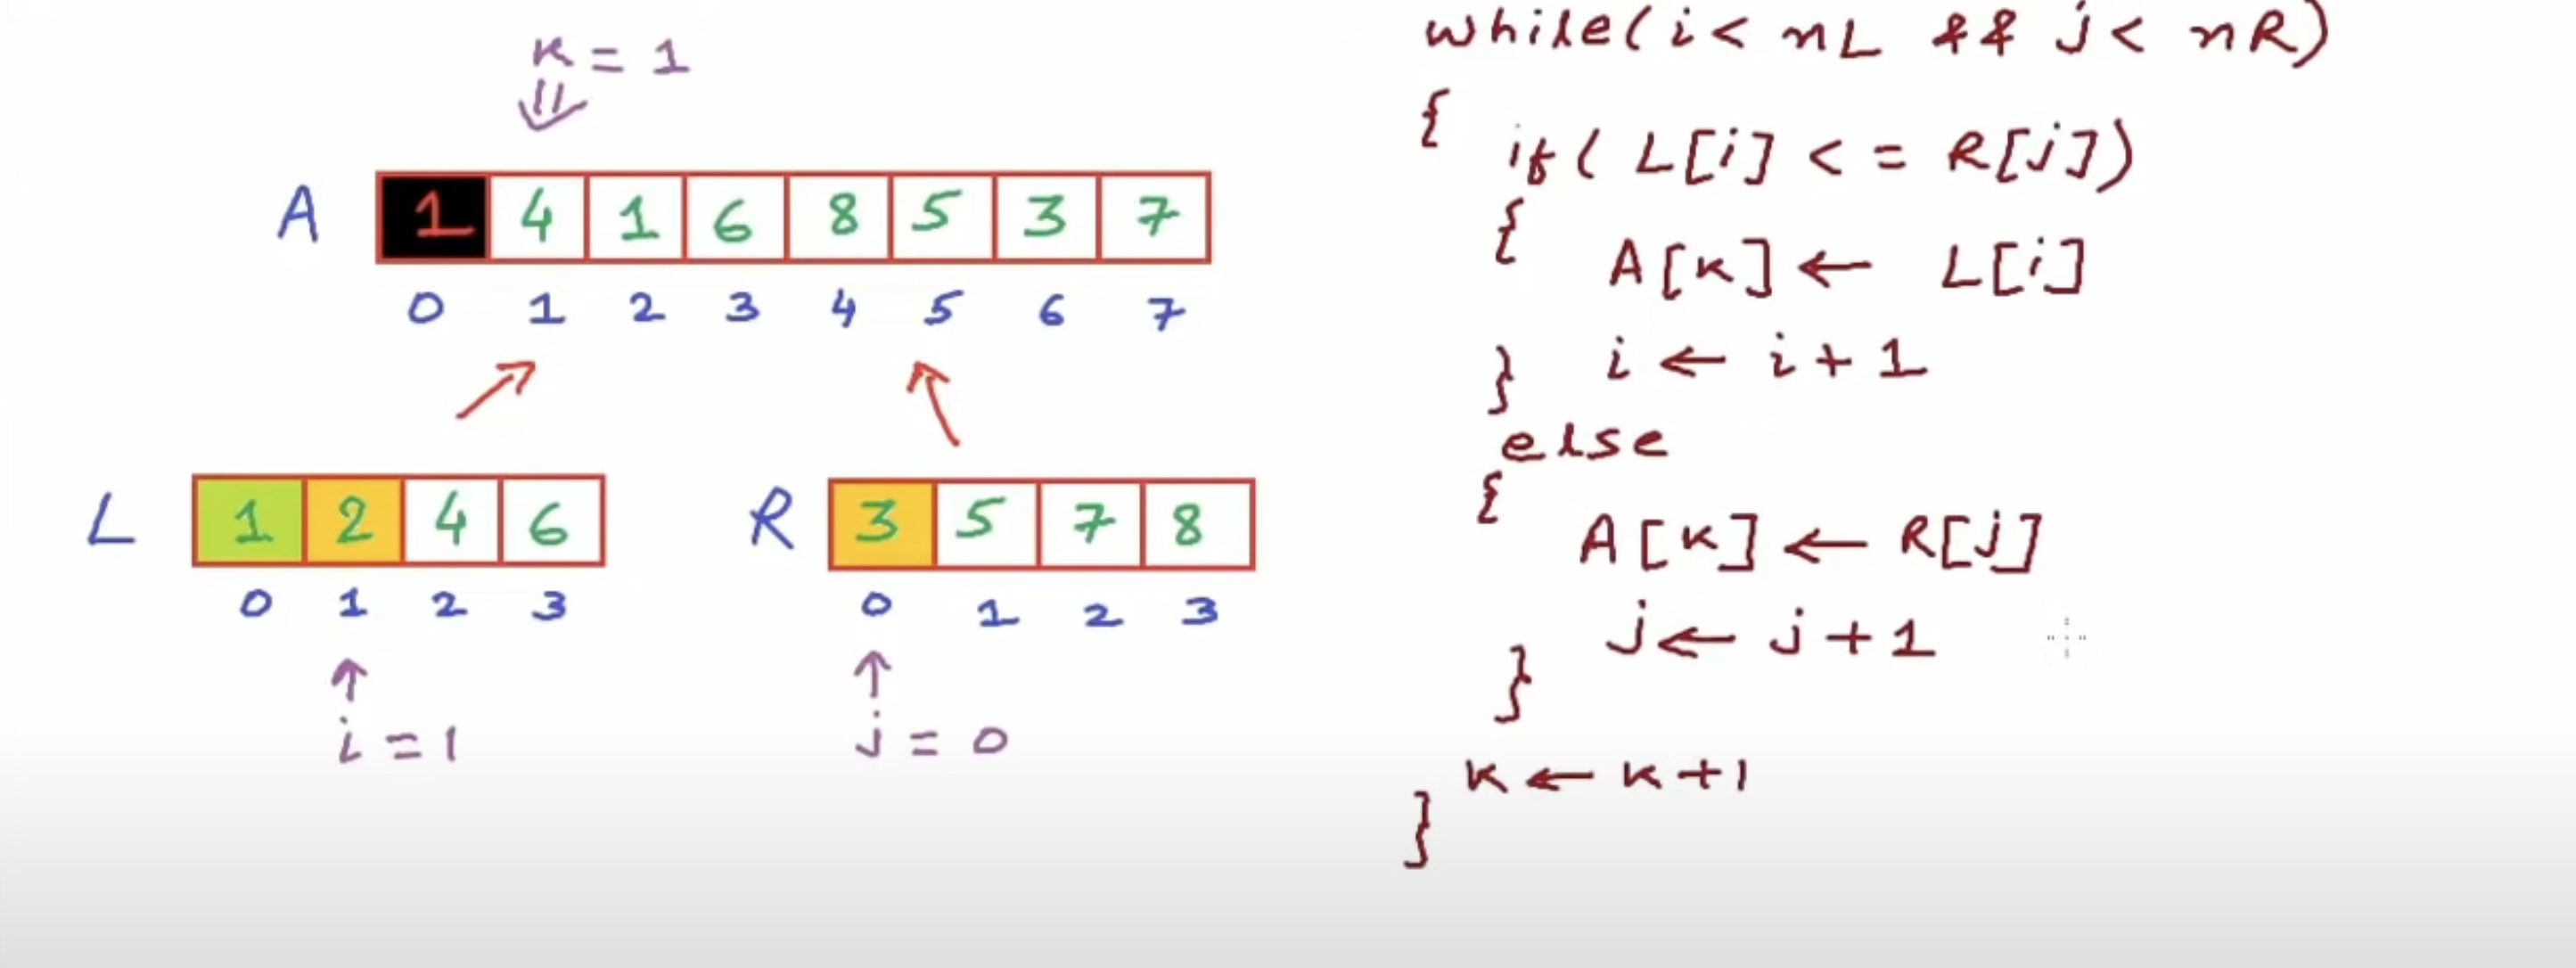 K = 1
A 1 4 1 6 8 5 3 7
0 1 2 3 4 5 6 7
L 1 2 4 6
0 1 2 3
i = 1
R 3 5 7 8
0 1 2 3
j = 0
while(i< nL && j< nR)
{ if( L[i] <= R[j])
{ A[K] ← L[i]
} i ← i+1
else
{
A[K] ← R[j]
j ← j+1
}
K ← K+1
}